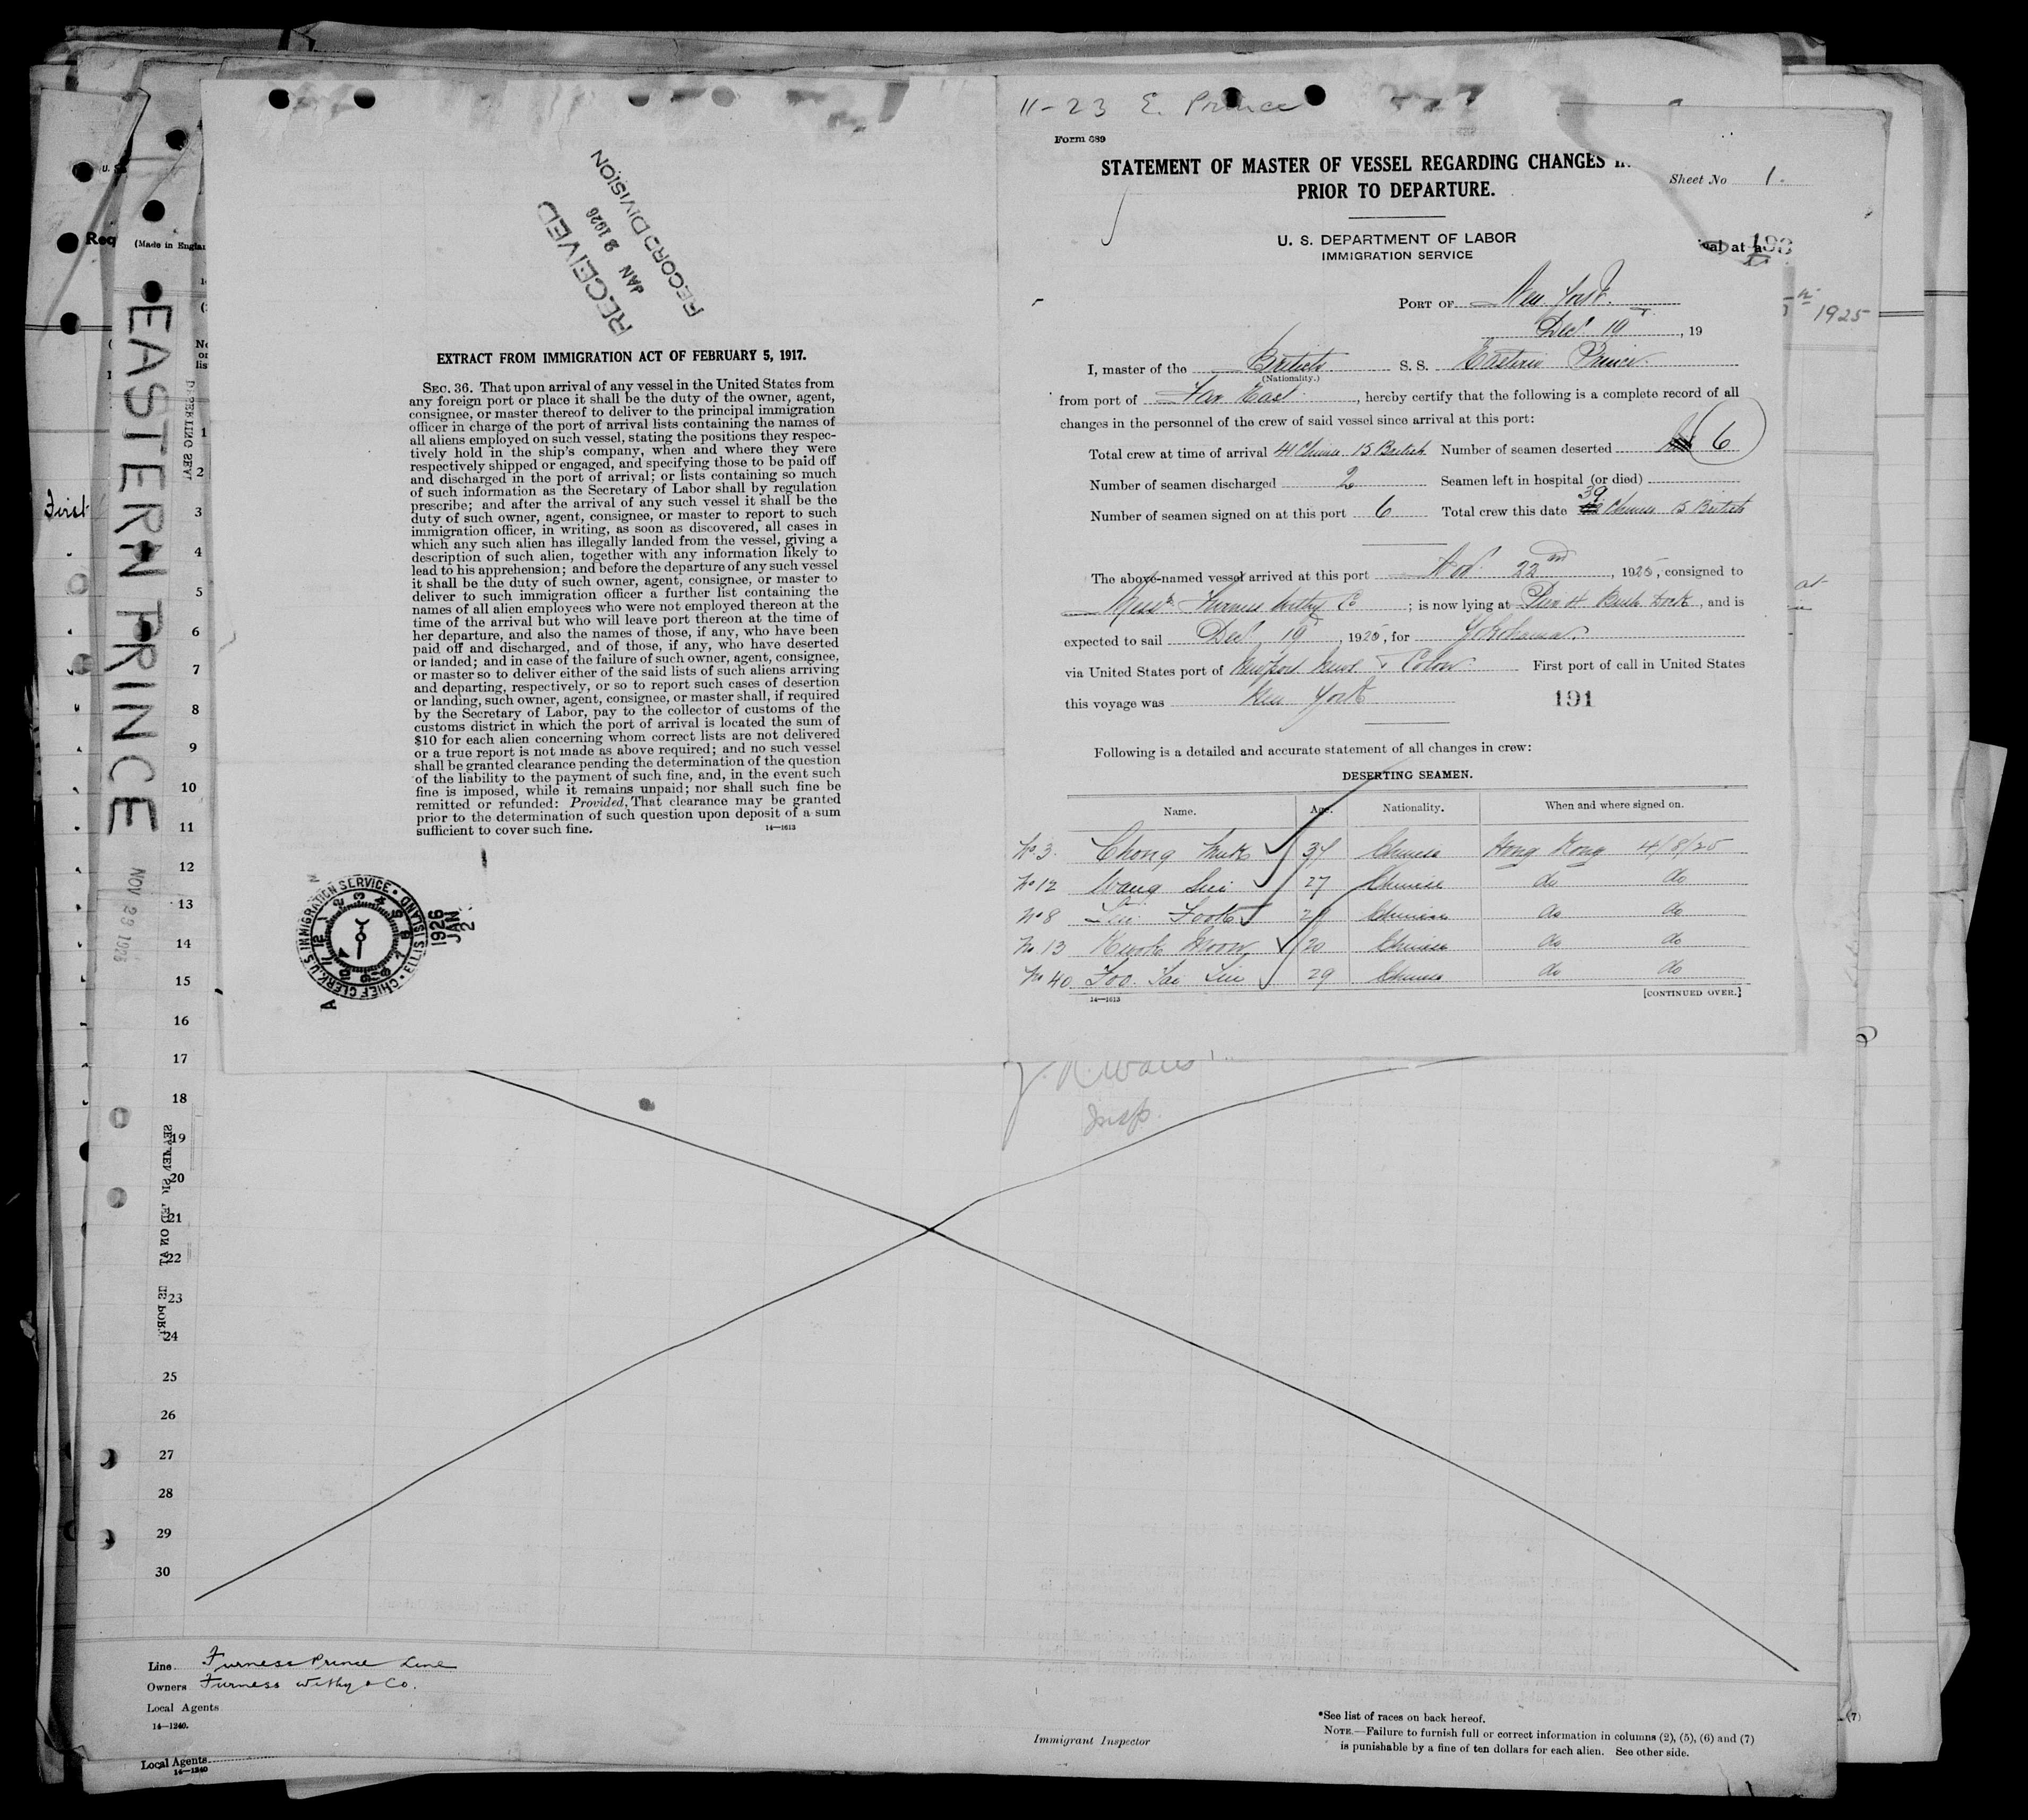 EASTERN PRINCE
NOV 23 1925
(Made in Englan
First
RECEIVED
JAN 2 1926
RECORD DIVISION
EXTRACT FROM IMMIGRATION ACT OF FEBRUARY 5, 1917.
SEC. 36. That upon arrival of any vessel in the United States from
any foreign port or place it shall be the duty of the owner, agent,
consignee, or master thereof to deliver to the principal immigration
officer in charge of the port of arrival lists containing the names of
all aliens employed on such vessel, stating the positions they respec-
tively hold in the ship's company, when and where they were
respectively shipped or engaged, and specifying those to be paid off
and discharged in the port of arrival; or lists containing so much
of such information as the Secretary of Labor shall by regulation
prescribe; and after the arrival of any such vessel it shall be the
duty of such owner, agent, consignee, or master to report to such
immigration officer, in writing, as soon as discovered, all cases in
which any such alien has illegally landed from the vessel, giving a
description of such alien, together with any information likely to
lead to his apprehension; and before the departure of any such vessel
it shall be the duty of such owner, agent, consignee, or master to
deliver to such immigration officer a further list containing the
names of all alien employees who were not employed thereon at the
time of the arrival but who will leave port thereon at the time of
her departure, and also the names of those, if any, who have been
paid off and discharged, and of those, if any, who have deserted
or landed; and in case of the failure of such owner, agent, consignee,
or master so to deliver either of the said lists of such aliens arriving
and departing, respectively, or so to report such cases of desertion
or landing, such owner, agent, consignee, or master shall, if required
by the Secretary of Labor, pay to the collector of customs of the
customs district in which the port of arrival is located the sum of
$10 for each alien concerning whom correct lists are not delivered
or a true report is not made as above required; and no such vessel
shall be granted clearance pending the determination of the question
of the liability to the payment of such fine, and, in the event such
fine is imposed, while it remains unpaid; nor shall such fine be
remitted or refunded: Provided, That clearance may be granted
prior to the determination of such question upon deposit of a sum
sufficient to cover such fine.
14—1613
CHIEF CLERK, U.S. IMMIGRATION SERVICE • ELLIS ISLAND
1926 JAN 2
11-23 E. Prince
Form 689
STATEMENT OF MASTER OF VESSEL REGARDING CHANGES
PRIOR TO DEPARTURE.
Sheet No 1.
U. S. DEPARTMENT OF LABOR
IMMIGRATION SERVICE
PORT OF New York.
Dec 19, 19
1925
I, master of the British S. S. Eastern Prince
(Nationality.)
from port of Far East, hereby certify that the following is a complete record of all
changes in the personnel of the crew of said vessel since arrival at this port:
Total crew at time of arrival 41 Chinese 15 British Number of seamen deserted 6
Number of seamen discharged 2 Seamen left in hospital (or died)
Number of seamen signed on at this port 6 Total crew this date 39 Chinese 15 British
The above-named vessel arrived at this port Nov 22nd, 1925, consigned to
Messrs Furness Withy Co; is now lying at Pier 4 Bush Dock, and is
expected to sail Dec 19, 1925, for Yokohama.
via United States port of Newport News & Colon First port of call in United States
this voyage was New York 191
Following is a detailed and accurate statement of all changes in crew:
DESERTING SEAMEN.
Name. Age. Nationality. When and where signed on.
No 3. Chong 37 Chinese Hong Kong 4/8/25
No 12 Wang Sui 27 Chinese do do
No 8 Foote Chinese do do
No 13 Kwok Moon 20 Chinese do do
No 40 Foo 29 Chinese do do
14—1613 [CONTINUED OVER.]
Insp.
1
2
3
4
5
6
7
8
9
10
11
12
13
14
15
16
17
18
19
20
21
22
23
24
25
26
27
28
29
30
Line Furness Prince Line
Owners Furness Withy & Co.
Local Agents
14—1240.
Local Agents
14—1240
Immigrant Inspector
*See list of races on back hereof.
NOTE.—Failure to furnish full or correct information in columns (2), (5), (6) and (7)
is punishable by a fine of ten dollars for each alien. See other side.
(7)